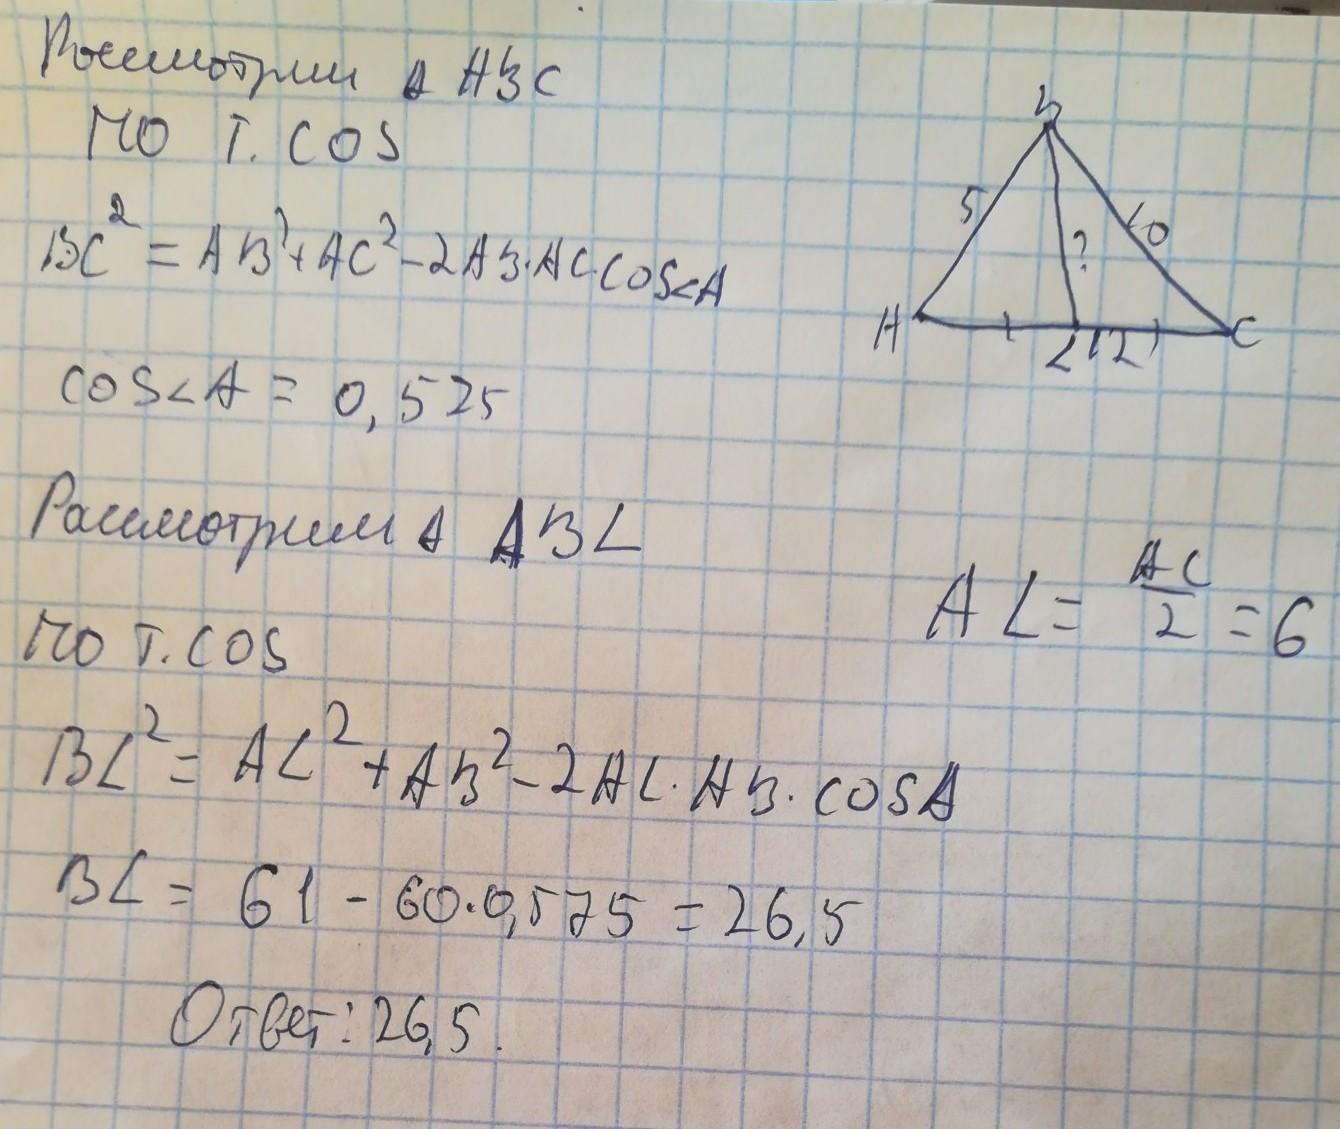 Рассмотрим Δ ABC
ПО Т. COS
BC² = AB² + AC² - 2AB·AC·COS<A
COS<A = 0,575
B
5
10
?
A
L
12
C
Рассмотрим Δ ABL
ПО Т. COS
AL = AC/2 = 6
BL² = AL² + AB² - 2AL·AB·COSA
BL = 61 - 60·0,575 = 26,5
Ответ: 26,5.